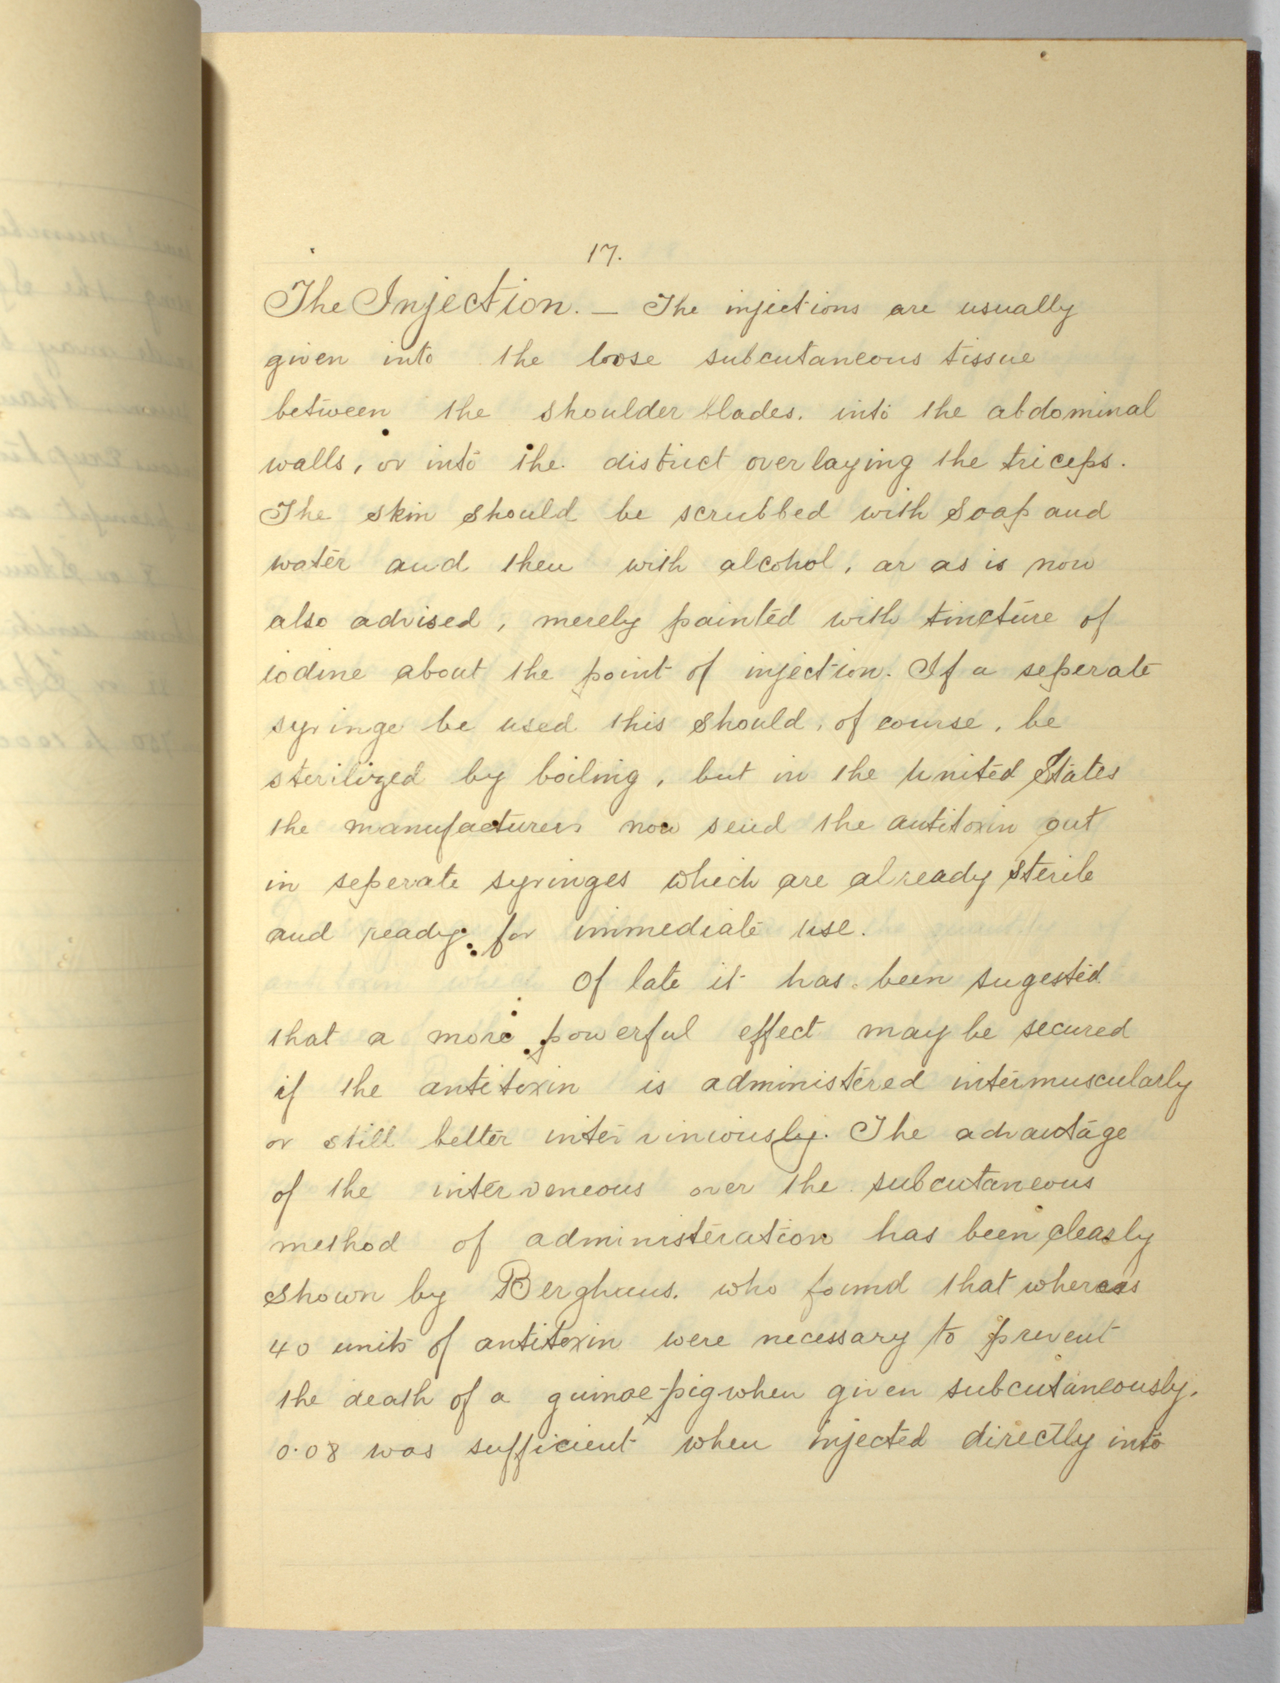 17.
The Injection. — The injections are usually
given into the loose subcutaneous tissue
between the shoulder blades. into the abdominal
walls, or into the district overlaying the triceps.
The skin should be scrubbed with soap and
water and then with alcohol, or as is now
also advised, merely painted with tincture of
iodine about the point of injection. If a seperate
syringe be used this should, of course, be
sterilized by boiling, but in the United States
the manufacturers now send the antitoxin out
in seperate syringes which are already sterile
and ready for immediate use.
Of late it has been sugested
that a more powerful effect may be secured
if the antitoxin is administered intermuscularly
or still better interviniously. The advantage
of the interveneous over the subcutaneous
method of administeration has been clearly
shown by Berghuus. who found that whereas
40 units of antitoxin were necessary to prevent
the death of a guinae-pig when given subcutaneously.
0.08 was sufficient when injected directly into